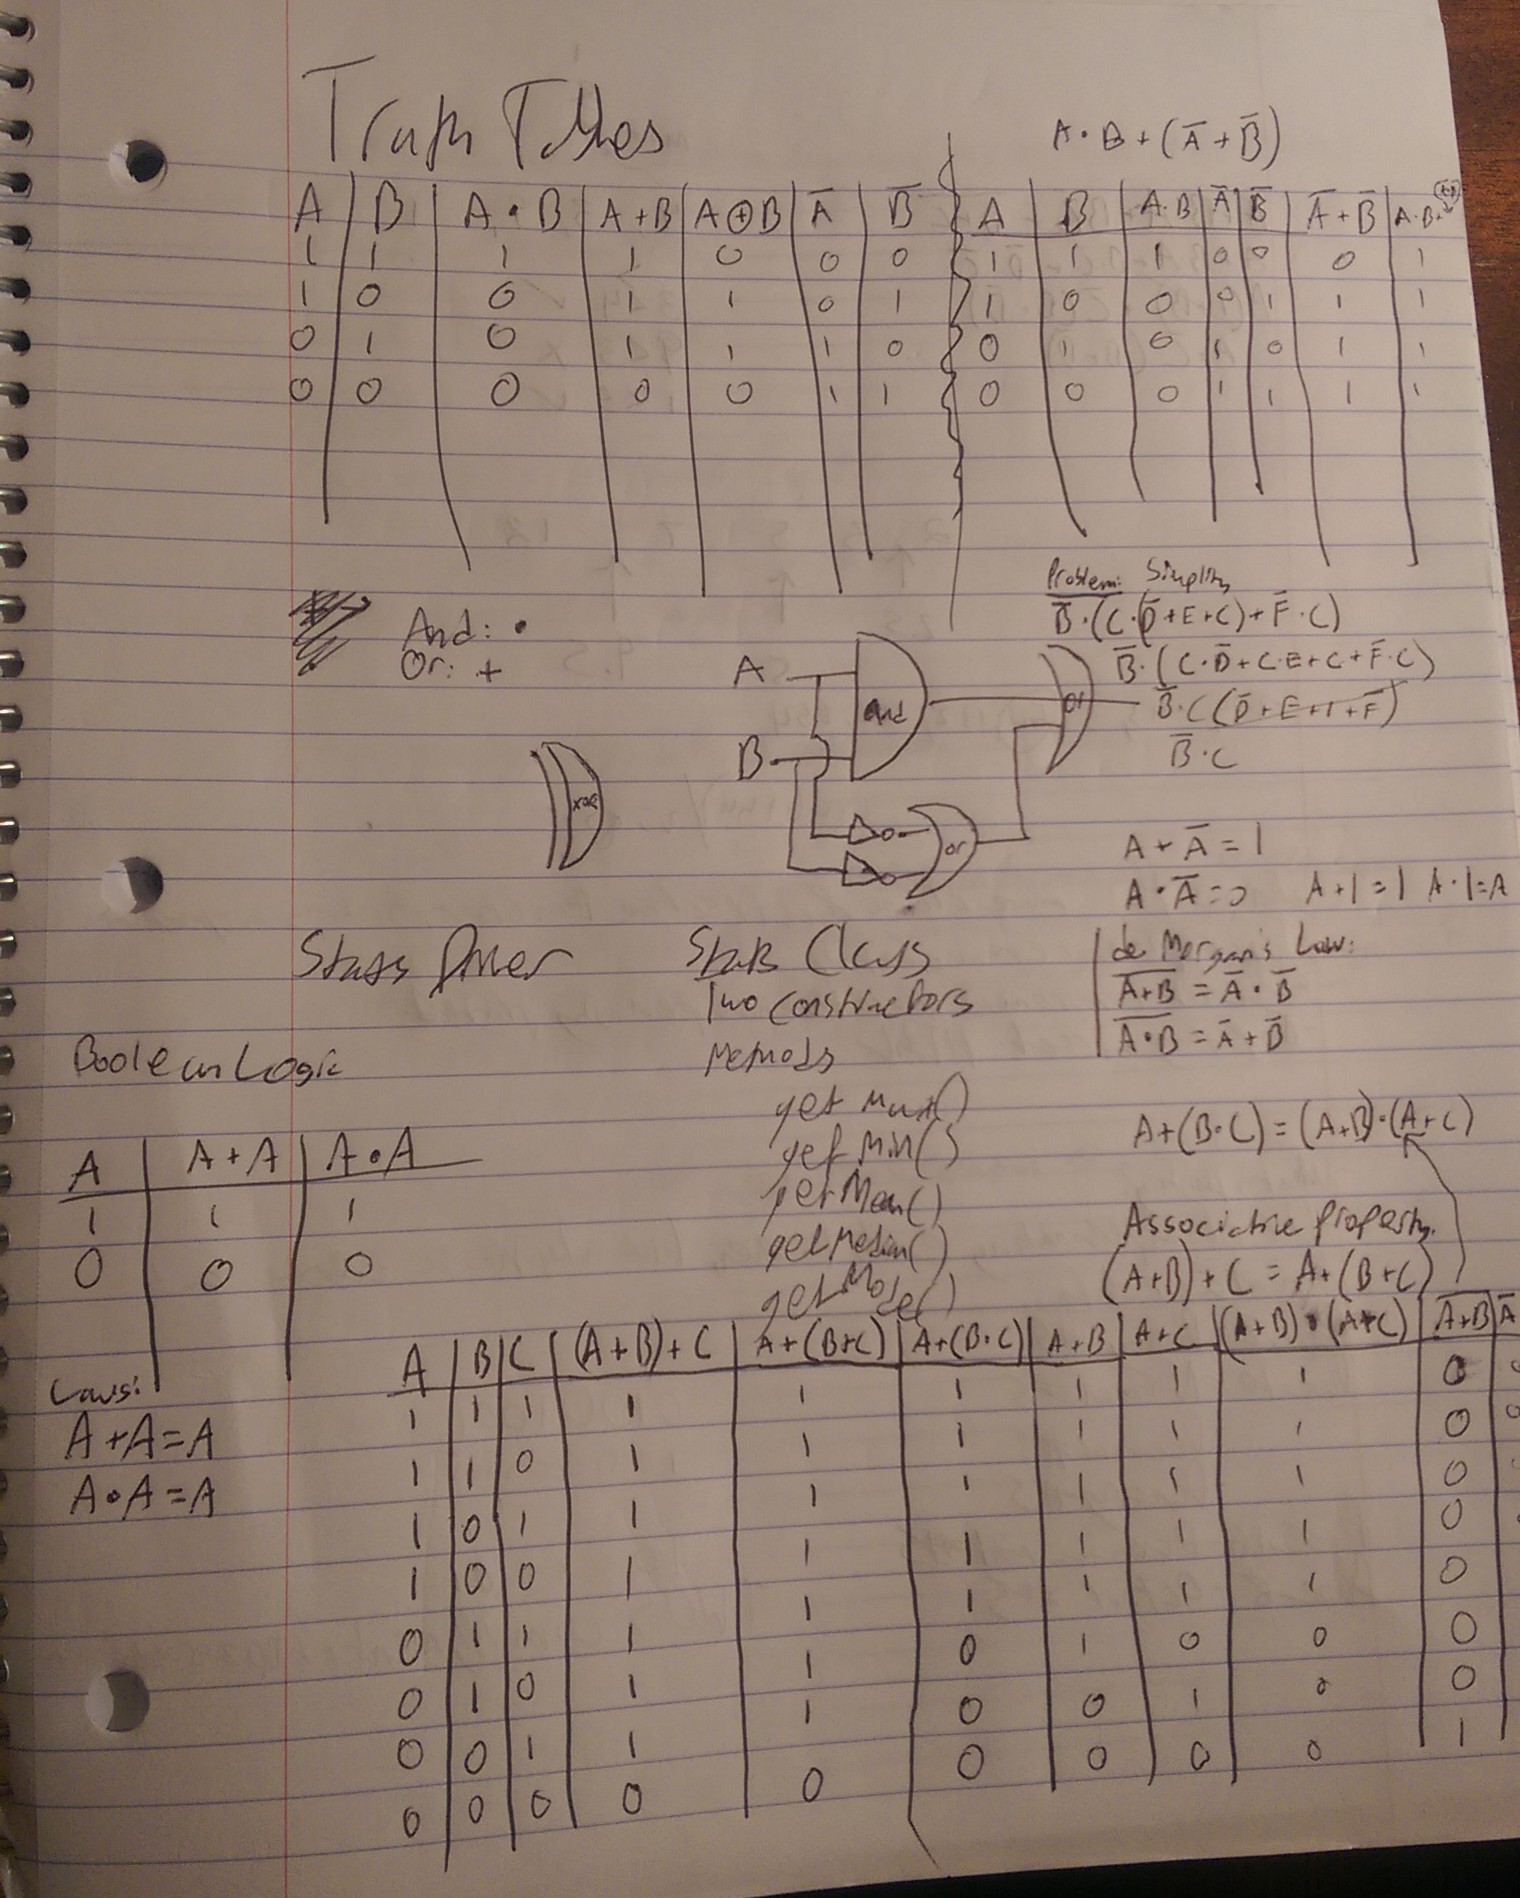 Truth Tables
A·B+(A̅+B̅)
A B A·B A+B A⊕B A̅ B̅
1 1 1 1 0 0 0
1 0 0 1 1 0 1
0 1 0 1 1 1 0
0 0 0 0 0 1 1
A B A·B A̅ B̅ A̅+B̅ A·B+
1 1 1 0 0 0 1
1 0 0 0 1 1 1
0 1 0 1 0 1 1
0 0 0 1 1 1 1
And: •
Or: +
xor
A
B
and
or
or
Problem: Simplify
B̅·(C·(D̅+E+C)+F̅·C)
B̅·(C·D̅+C·E+C+F̅·C)
B̅·C(D̅+E+1+F̅)
B̅·C
A+A̅=1
A·A̅=0 A+1=1 A·1=A
de Morgan's Law:
A̅+̅B̅ = A̅·B̅
A̅·̅B̅ = A̅+B̅
Stats Driver
Stats Class
Two constructors
Methods
getMax()
getMin()
getMean()
getMedian()
getMode()
Boolean Logic
A A+A A·A
1 1 1
0 0 0
Laws:
A+A=A
A·A=A
A+(B·C)=(A+B)·(A+C)
Associative Property.
(A+B)+C=A+(B+C)
A B C (A+B)+C A+(B+C) A+(B·C) A+B A+C (A+B)·(A+C) A̅+̅B̅ A̅
1 1 1 1 1 1 1 1 1 0 0
1 1 0 1 1 1 1 1 1 0 0
1 0 1 1 1 1 1 1 1 0
1 0 0 1 1 1 1 1 1 0
0 1 1 1 1 1 1 1 1 0
0 1 0 1 1 0 1 0 0 0
0 0 1 1 1 0 0 1 0 0
0 0 0 0 0 0 0 0 0 1